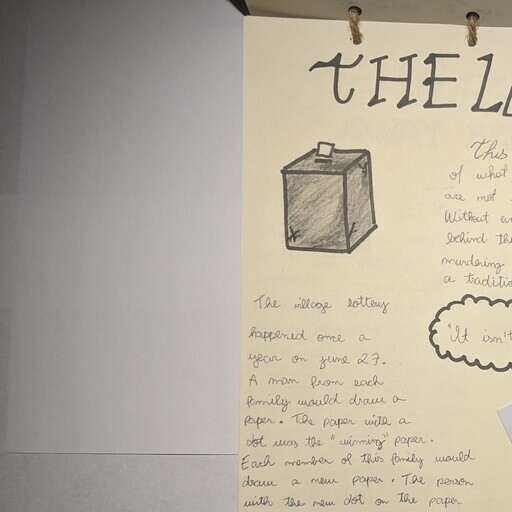 THE L
This
of what
are not
Without
behind the
murdering
a traditio
"It isn't
The village lottery
happened once a
year on june 27.
A man from each
family would draw a
paper. The paper with a
dot was the "winning" paper.
Each member of this family would
draw a new paper. The person
with the new dot on the paper